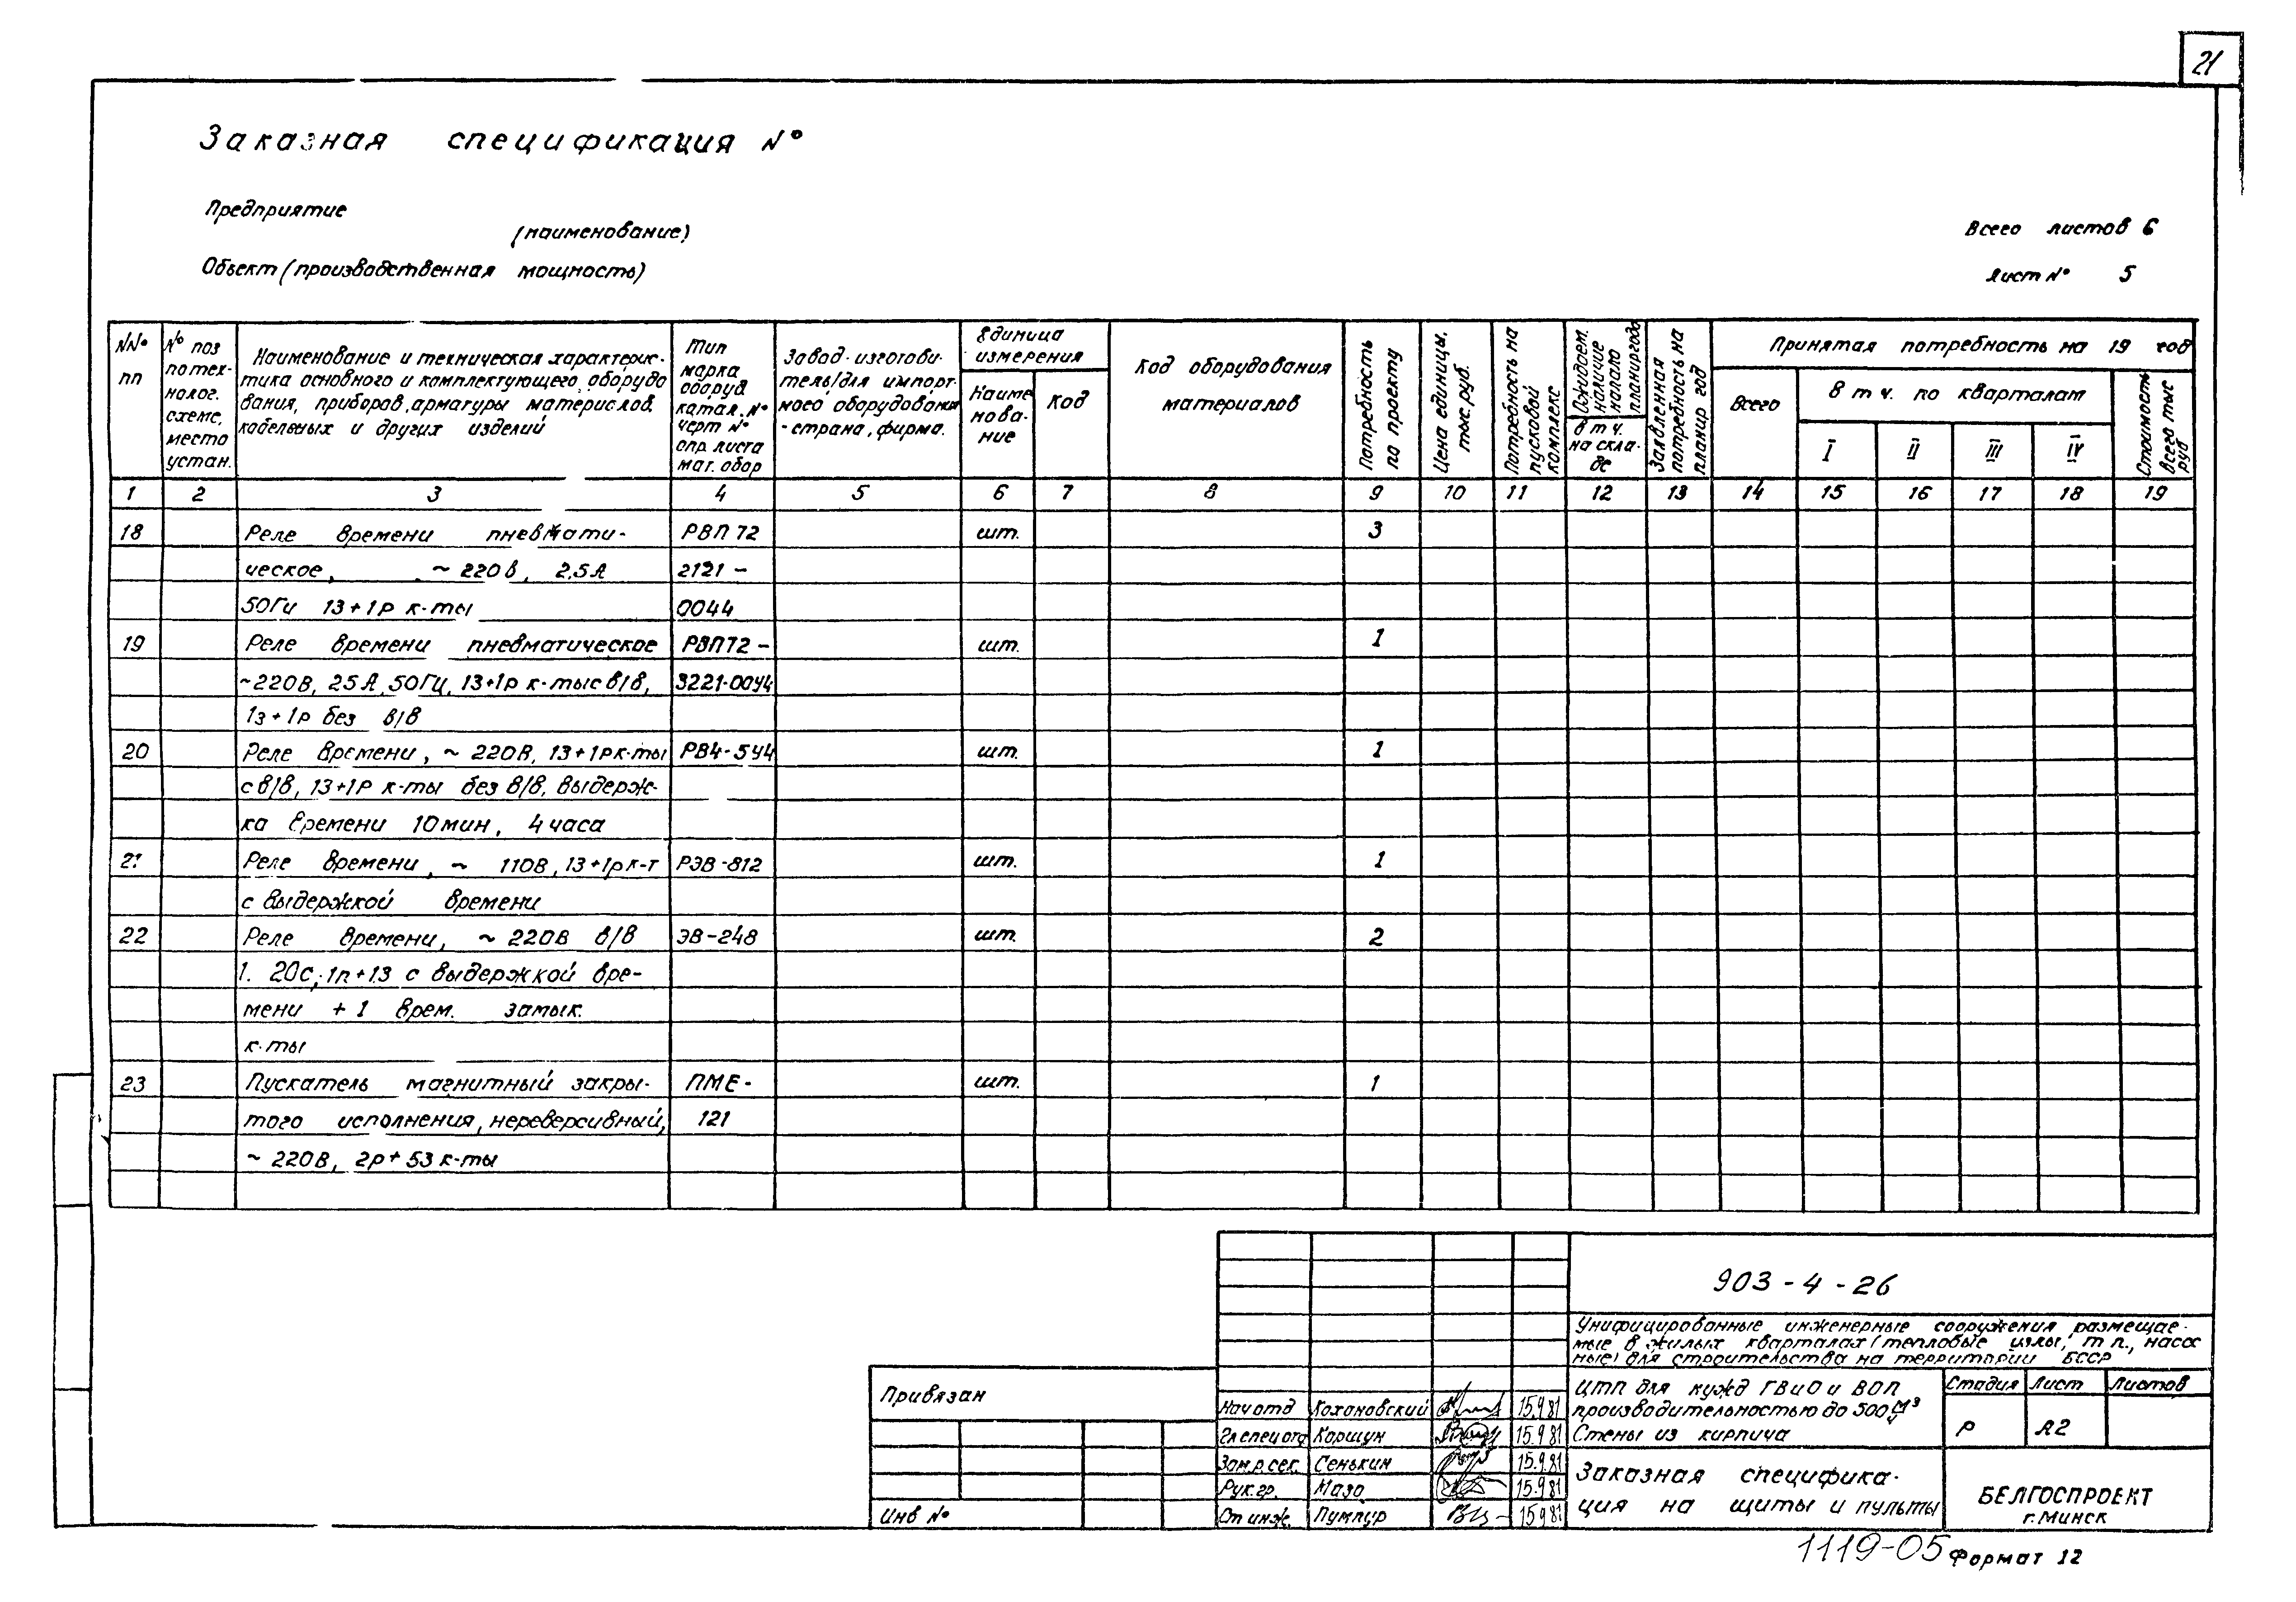 21
Заказная спецификация №
Предприятие
(наименование)
Объект (производственная мощность)
Всего листов 6
Лист № 5
№№ пп
№ поз по технолог. схеме, место устан.
Наименование и техническая характерис-
тика основного и комплектующего оборудо
вания, приборов, арматуры материалов,
кабельных и других изделий
Тип марка оборуд катал. № черт № опр. листа мат. обор
Завод-изготови-
тель/для импорт-
ного оборудования
- страна, фирма.
Единица измерения
Наиме нова- ние
Код
Код оборудования материалов
Потребность по проекту
Цена единицы, тыс. руб.
Потребность на пусковой комплекс
Ожидаем. наличие начало планир года
в т ч. на скла- де
Заявленная потребность на планир год
Принятая потребность на 19 год
Всего
В т ч. по кварталам
I II III IV
Стоимость всего тыс руб
1 2 3 4 5 6 7 8 9 10 11 12 13 14 15 16 17 18 19
18 Реле времени пневмати- РВП 72 шт. 3
ческое, ~ 220в, 2,5А 2121 -
50Гц 1з + 1р к-ты 0044
19 Реле времени пневматическое РВП72 - шт. 1
~220В, 25А, 50Гц, 1з+1р к-ты с в/в, 3221-00У4
1з + 1р без в/в
20 Реле времени, ~ 220В, 1з+1р к-ты РВ4-5У4 шт. 1
с в/в, 1з+1р к-ты без в/в, выдерж-
ка времени 10 мин, 4 часа
21 Реле времени, ~ 110В, 1з+1р к-т РЭВ-812 шт. 1
с выдержкой времени
22 Реле времени, ~ 220В в/в ЭВ-248 шт. 2
1. 20с, 1п+1з с выдержкой вре-
мени + 1 врем. замык.
к-ты
23 Пускатель магнитный закры- ПМЕ- шт. 1
того исполнения, нереверсивный, 121
~ 220В, 2р + 5з к-ты
903-4-26
Унифицированные инженерные сооружения размещае-
мые в жилых кварталах (тепловые узлы, т п., насос
ные) для строительства на территории БССР
ЦТП для нужд ГВ и О и ВОП
производительностью до 500 м³/ч
Стены из кирпича
Стадия Лист Листов
Р А2
Заказная специфика-
ция на щиты и пульты
БЕЛГОСПРОЕКТ
г. Минск
Привязан
Инв №
Нач отд Кохановский 15.9.81
Гл спец отд Коршун 15.9.81
Зам. р. сек. Сенькин 15.9.81
Рук. гр. Мазо 15.9.81
Ст инж. Пумпур 15.9.81
1119-05
Формат 12